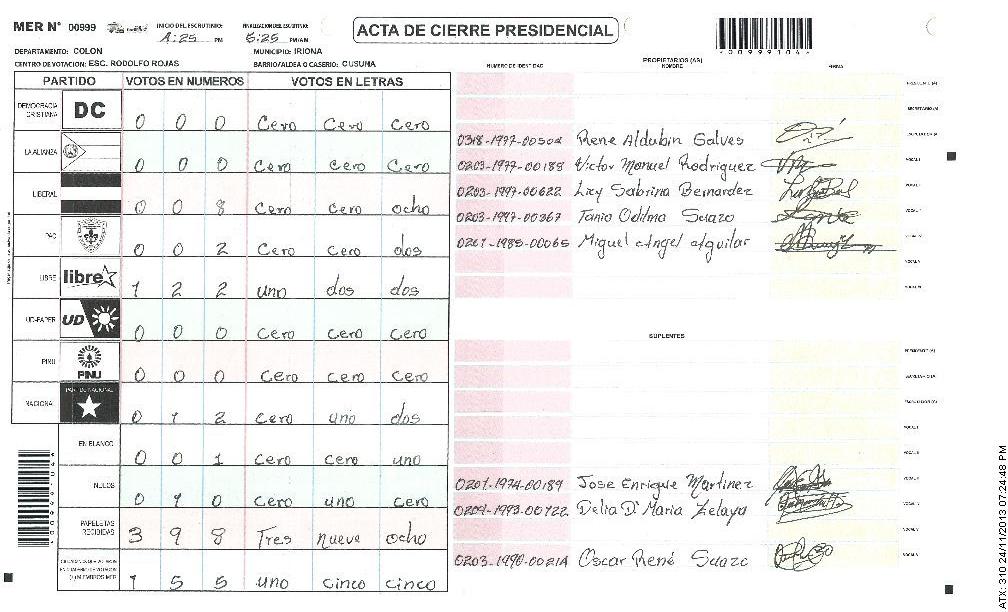 MER N° 00999 INICIO DEL ESCRUTINIO: 4:25 PM FINALIZACION DEL ESCRUTINIO: 5:25 PM/AM ACTA DE CIERRE PRESIDENCIAL
DEPARTAMENTO: COLON MUNICIPIO: IRIONA
CENTRO DE VOTACION: ESC. RODOLFO ROJAS BARRIO/ALDEA O CASERIO: CUSUNA
PARTIDO VOTOS EN NUMEROS VOTOS EN LETRAS
DEMOCRACIA CRISTIANA DC 0 0 0 Cero Cero Cero
LA ALIANZA 0 0 0 Cero Cero Cero
LIBERAL 0 0 8 Cero Cero ocho
PAC 0 0 2 Cero Cero dos
LIBRE libre 1 2 2 uno dos dos
UD-FAPER UD 0 0 0 Cero Cero Cero
PINU PINU 0 0 0 Cero Cero Cero
NACIONAL PARTIDO NACIONAL 0 1 2 Cero uno dos
EN BLANCO 0 0 1 Cero Cero uno
NULOS 0 1 0 Cero uno Cero
PAPELETAS RECIBIDAS 3 9 8 Tres nueve ocho
1 5 5 uno cinco cinco
NUMERO DE IDENTIDAD PROPIETARIOS (AS) NOMBRE FIRMA
PRESIDENTE (A)
SECRETARIO (A)
0318-1977-00504 Rene Aldubin Galves ESCRUTADOR (A)
0203-1977-00189 Victor Manuel Rodriguez VOCAL I
0203-1997-00622 Licy Sabrina Bernardez
0203-1997-00367 Tania Odilma Suazo
0201-1985-00065 Miguel Angel Aguilar
SUPLENTES
0201-1974-00189 Jose Enrique Martinez
0209-1993-00722 Delia D' Maria Zelaya
0203-1990-00214 Oscar René Suazo
ATX: 310 24/11/2013 07:24:48 PM